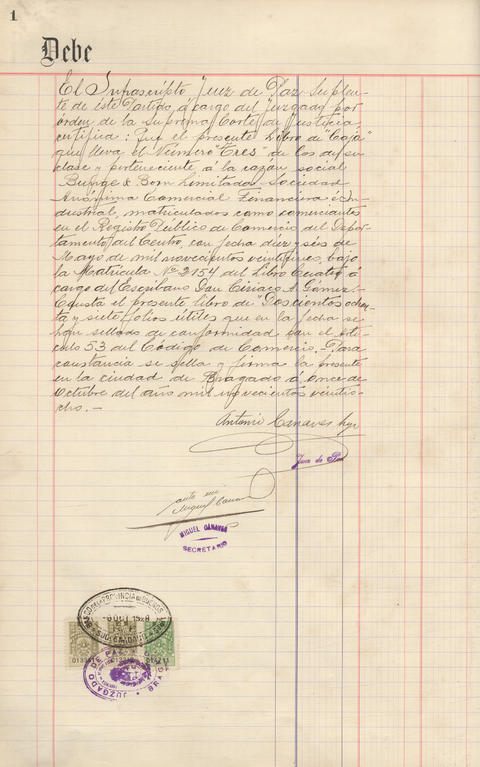 1
Debe
El Infrascripto Juez de Paz Suplen-
te de este Partido, á cargo del Juzgado por
órden de la Suprema Corte de Justicia,
certifica: Que el presente Libro de "Caja"
que lleva el Número "Tres" de los de su
clase y perteneciente á la razón social
Bunge & Born Limitada Sociedad
Anónima Comercial Financiera é In-
dustrial, matriculados como comerciantes
en el Registro Público de Comercio del Depar-
tamento del Centro, con fecha diez y séis de
Mayo de mil novecientos veintisiete, bajo
la Matrícula Nº 2154 del Libro Cuatro, á
cargo del Escribano Don Ciriaco A. Gómez.-
Consta el presente libro de "Doscientos ochen-
ta y siete folios útiles que en la fecha se
han sellado de conformidad con el artí-
culo 53 del Código de Comercio. Para
constancia se sella y firma la presente
en la ciudad de Bragado á once de
Octubre del año mil novecientos veintio-
cho.-
Antonio Canaves
Juez de Paz
ante mi
Miguel Canaves
MIGUEL CANAVES
SECRETARIO
BANCO DE LA PROVINCIA DE BUENOS
OCT 1928
JUZGADO DE PAZ